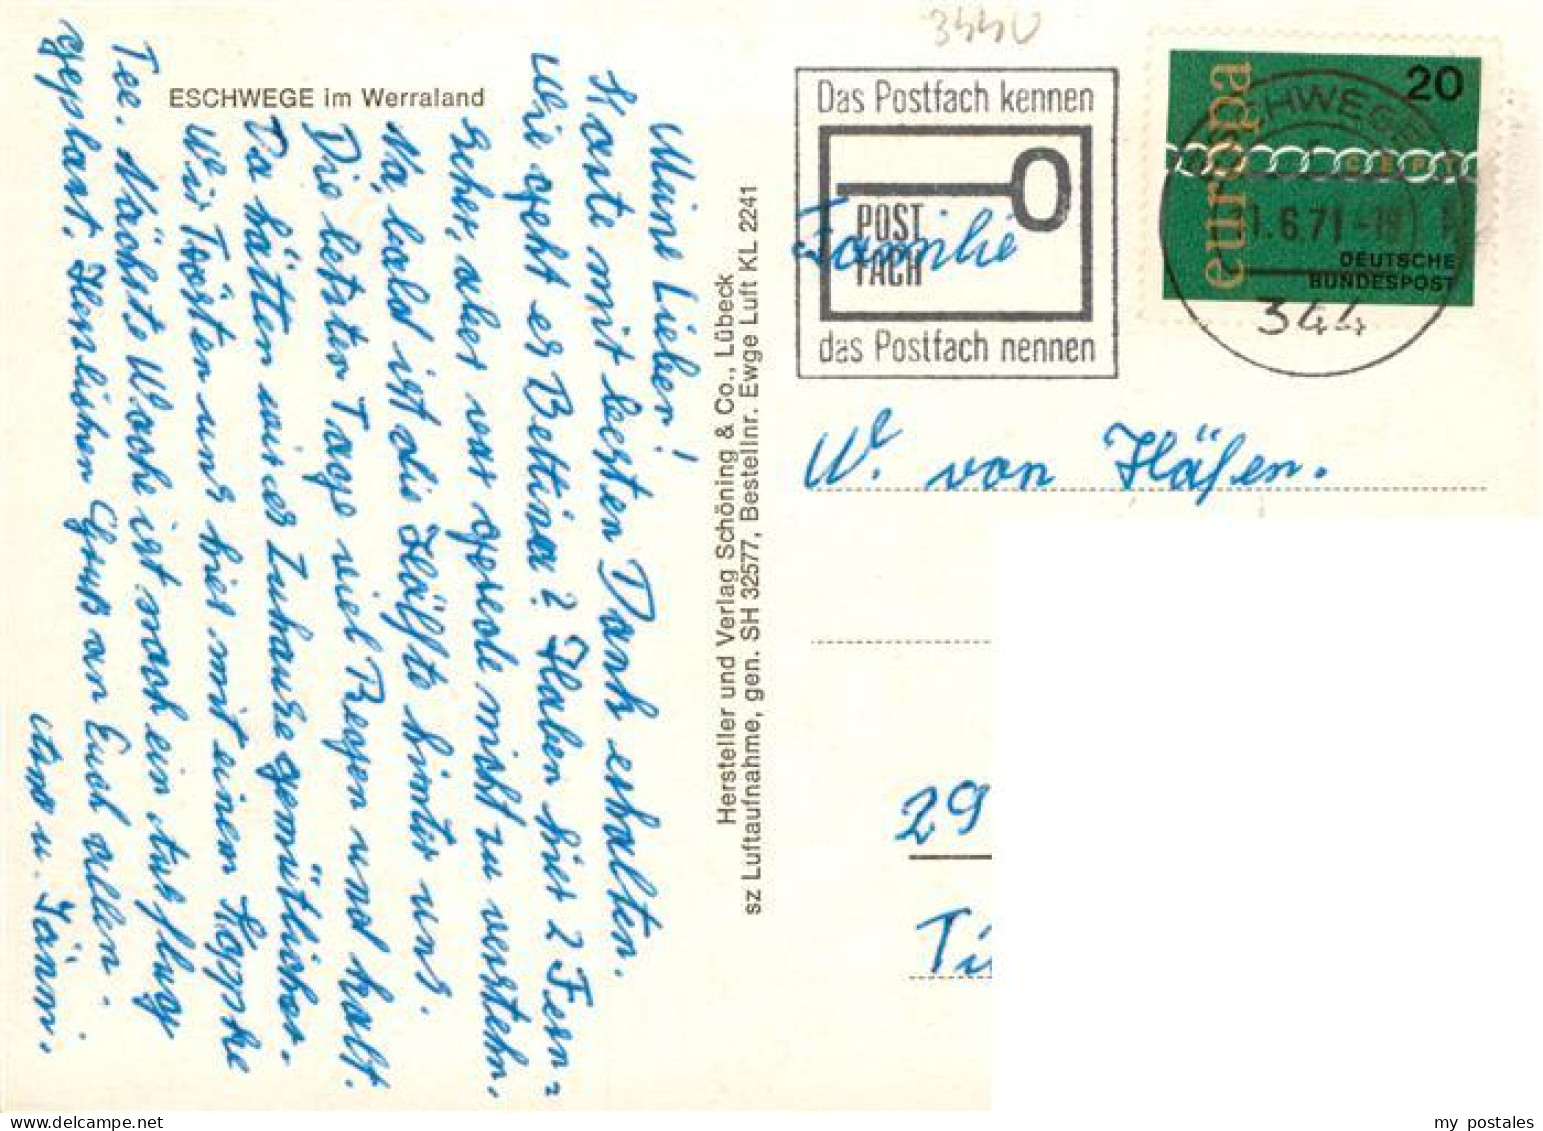 ESCHWEGE im Werraland
Meine Lieben!
Karte mit besten Dank erhalten.
Wie geht es Bettina? Haben hier 2 Fern=
seher, aber war gerade nicht zu verstehn,
Na, bald ist die Hälfte hinter uns.
Die letzten Tage viel Regen und kalt.
Da hätten wir es Zuhause gemütlicher.
Wir Trösten uns hier mit einem Kappke
Tee. Nächste Woche ist noch ein Ausflug
geplant. Herzlichen Gruß an Euch allen.
Hersteller und Verlag Schöning & Co., Lübeck
sz Luftaufnahme, gen. SH 32577, Bestellnr. Ewge Luft KL 2241
3440
Das Postfach kennen
POST
FACH
das Postfach nennen
europa
20
CEPT
DEUTSCHE
BUNDESPOST
ESCHWEGE
1.6.71-18
344
Familie
W. von Häfen.
29
my postales